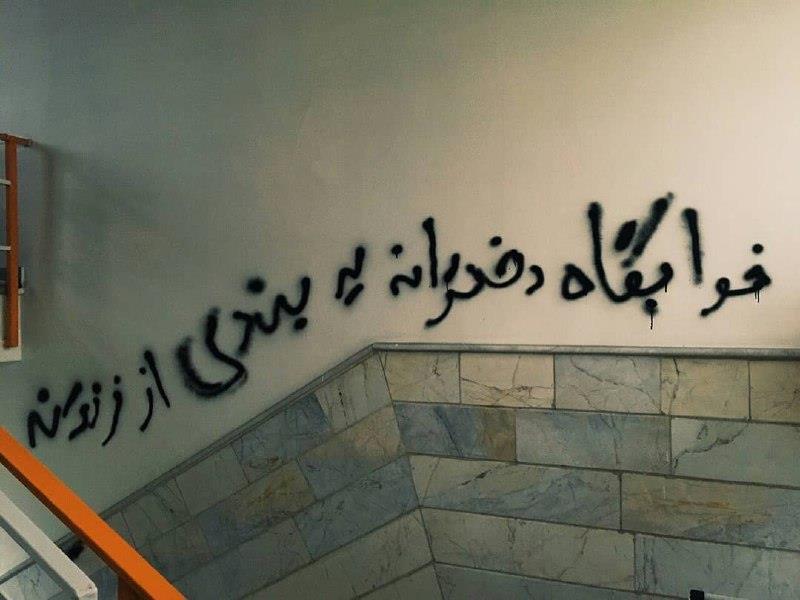 خوابگاه دخترانه یه بندی از زندونه